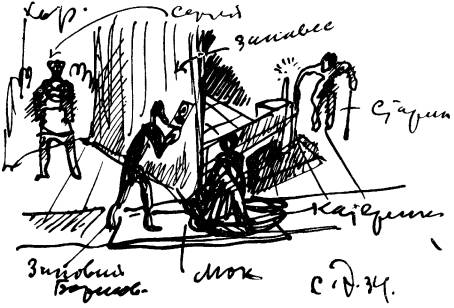 Хор.
Сергей
Занавес
Старик
Катерина
Зиновий
Борисов.
С.Д.34.